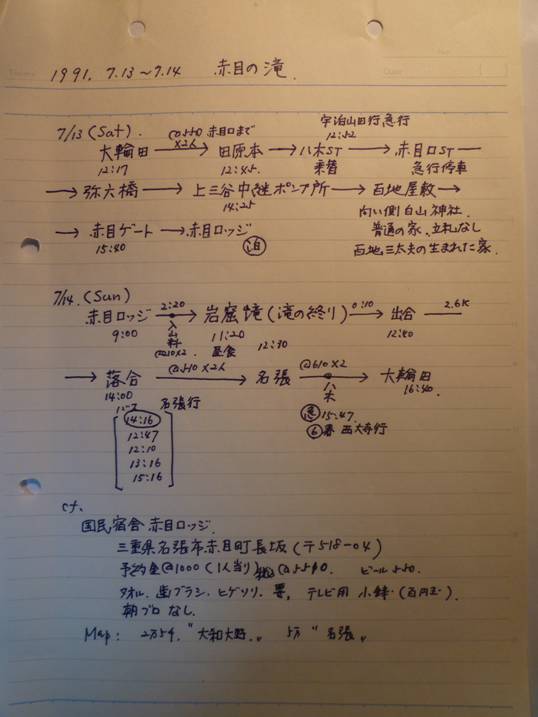 1991. 7.13〜7.14 赤目の滝.
7/13 (Sat).
宇治山田行急行
12:52
大輪田 → 田原本 → 八木ST → 赤目口ST
@540 赤目口まで
×2人
12:17 12:45. 乗替 急行停車
→ 弥六橋 → 上三谷中継ポンプ所 → 百地屋敷 →
14:25
向い側白山神社.
普通の家、立札なし
百地三太夫の生まれた家.
→ 赤目ゲート → 赤目ロッジ
15:40 泊
7/14. (Sun)
赤目ロッジ → 岩窟滝 (滝の終り) → 出合
2:20 0:10 2.6K
9:00 入山料 11:20 12:40
@210×2. 昼食 12:30
→ 落合 → 名張 → 大輪田
@510×2人 @610×2
14:00 名張行 八木 16:40.
急 15:47.
⑥番 西大寺行
14:16
12:47
12:10
13:16
15:16
cf.
国民宿舎 赤目ロッジ.
三重県名張市赤目町長坂 (〒518-04)
予約金@1000 (1人当り) @5510. ビール550.
タオル. 歯ブラシ. ヒゲソリ. 要, テレビ用 小銭. (百円玉).
朝ブロ なし.
Map: 2万5千. "大和大野". 5万 "名張"